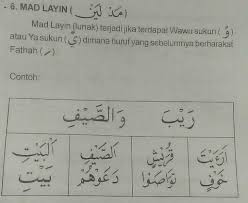 6. MAD LAYIN ( مَدْ لَيِّنْ )
Mad Layin (lunak) terjadi jika terdapat Wawu sukun ( وْ )
atau Ya sukun ( يْ ) dimana huruf yang sebelumnya berharakat
Fathah ( ـَ )
Contoh:
رَيْبَ وَالصَّيْفِ
اَرَءَيْتَ قُرَيْشٍ الصَّيْفِ الْبَيْتِ
خَوْفٍ تَوَاصَوْا دَعَوْهُمْ بَيْتٍ